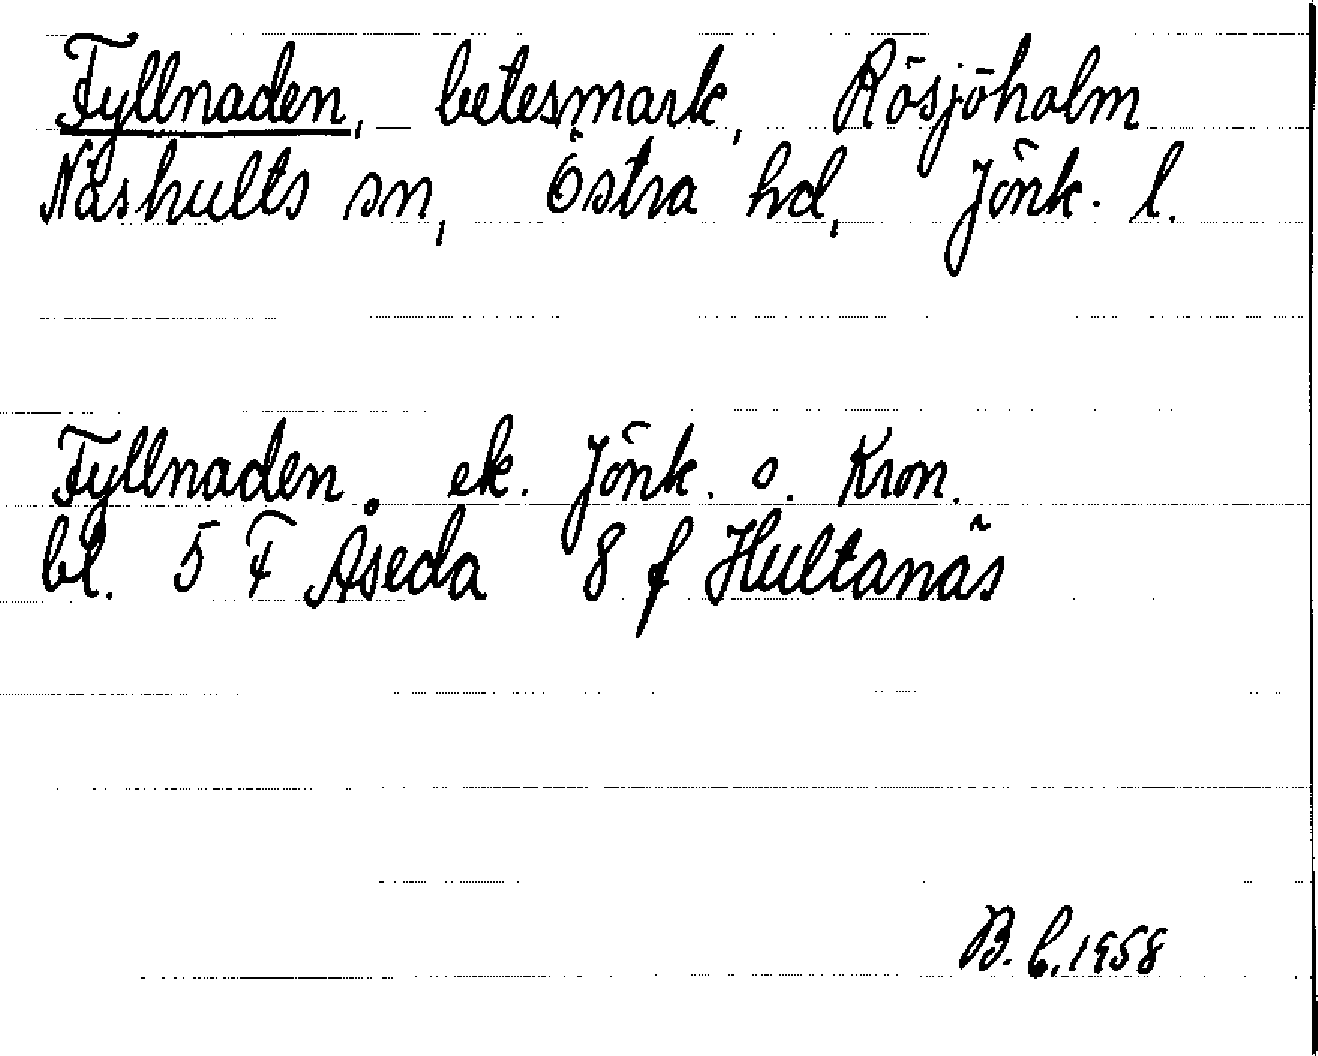 Fyllnaden, betesmark, Rösjöholm
Näshults sn, Östra hd, Jönk. l.
Fyllnaden. ek. Jönk. o. Kron.
bl. 5 F Åseda 8 f Hultanäs
B. b. 1958